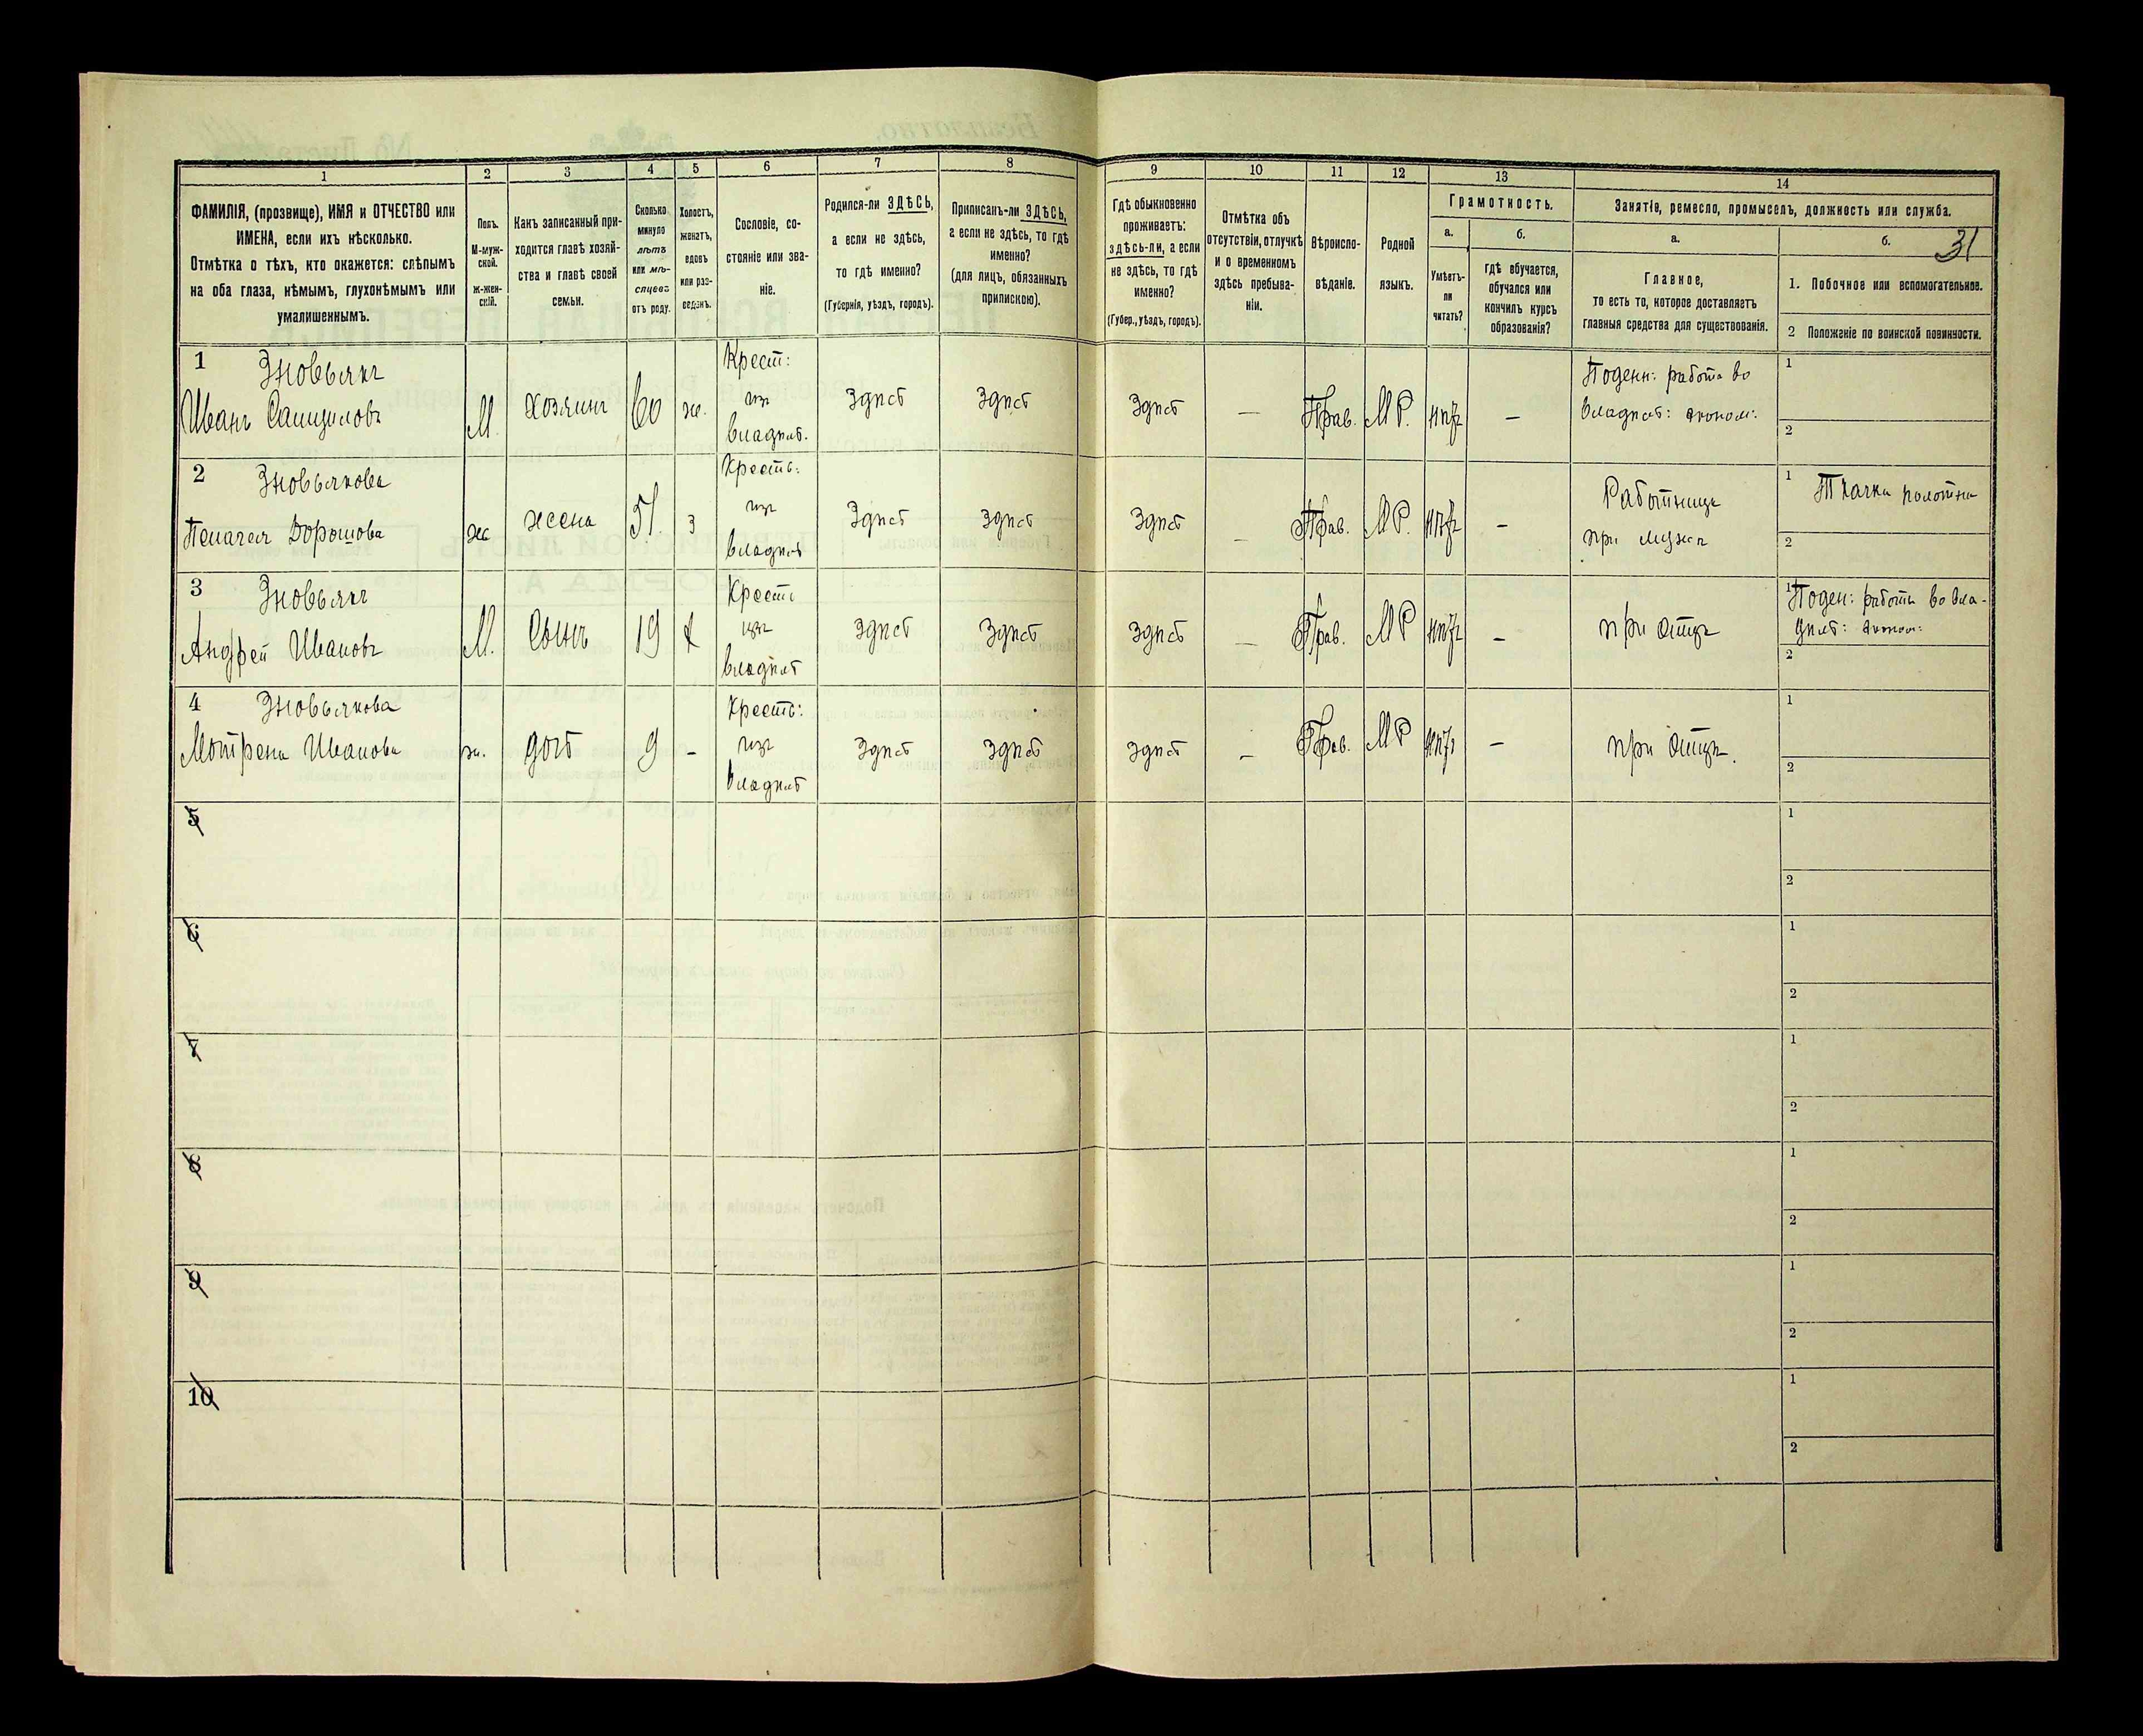 1
2
3
4
5
6
7
8
9
10
11
12
13
14
ФАМИЛІЯ, (прозвище), ИМЯ и ОТЧЕСТВО или
ИМЕНА, если ихъ нѣсколько.
Отмѣтка о тѣхъ, кто окажется: слѣпымъ
на оба глаза, нѣмымъ, глухонѣмымъ или
умалишеннымъ.
Полъ.
М-муж-
ской.
ж-жен-
скій.
Какъ записанный при-
ходится главѣ хозяй-
ства и главѣ своей
семьи.
Сколько
минуло
лѣтъ
или мѣ-
сяцевъ
отъ роду.
Холостъ,
женатъ,
вдовъ
или раз-
веденъ.
Сословіе, со-
стояніе или зва-
ніе.
Родился-ли ЗДѢСЬ,
а если не здѣсь,
то гдѣ именно?
(Губернія, уѣздъ, городъ).
Приписанъ-ли ЗДѢСЬ,
а если не здѣсь, то гдѣ
именно?
(для лицъ, обязанныхъ
припискою).
Гдѣ обыкновенно
проживаетъ:
здѣсь-ли, а если
не здѣсь, то гдѣ
именно?
(Губер., уѣздъ, городъ).
Отмѣтка объ
отсутствіи, отлучкѣ
и о временномъ
здѣсь пребыва-
ніи.
Вѣроиспо-
вѣданіе.
Родной
языкъ.
Грамотность.
а.
Умѣетъ-
ли
читать?
б.
гдѣ обучается,
обучался или
кончилъ курсъ
образованія?
Занятіе, ремесло, промыселъ, должность или служба.
а.
Главное,
то есть то, которое доставляетъ
главныя средства для существованія.
б.
31
1. Побочное или вспомогательное.
2 Положеніе по воинской повинности.
1 Зновьякъ
Иванъ
М.
хозяинъ
60
ж.
Крест:
изъ
владѣл.
Здѣсь
Здѣсь
Здѣсь
—
Прав.
МР.
нѣтъ
—
Поденн: работа во
владѣл: эконом:
1
2
2 Зновьякова
Пелагея Дорошова
ж
жена
51.
з
Кресть:
изъ
владѣл
Здѣсь
Здѣсь
Здѣсь
—
Прав.
МР.
нѣтъ
—
Работница
при мужѣ
1 Ткачка полотна
2
3 Зновьякъ
Андрей Ивановъ
М.
Сынъ
19
х
Кресть
изъ
владѣл
Здѣсь
Здѣсь
Здѣсь
—
Прав.
МР
нѣтъ
—
при отцѣ
1 Поден: работы во вла-
дѣл: эконом:
2
4 Зновьякова
Мотрена Иванова
ж.
дочь
9
-
Кресть:
изъ
владѣл
Здѣсь
Здѣсь
Здѣсь
—
Прав.
МР
нѣтъ
—
при отцѣ.
1
2
5
1
2
6
1
2
7
1
2
8
1
2
9
1
2
10
1
2